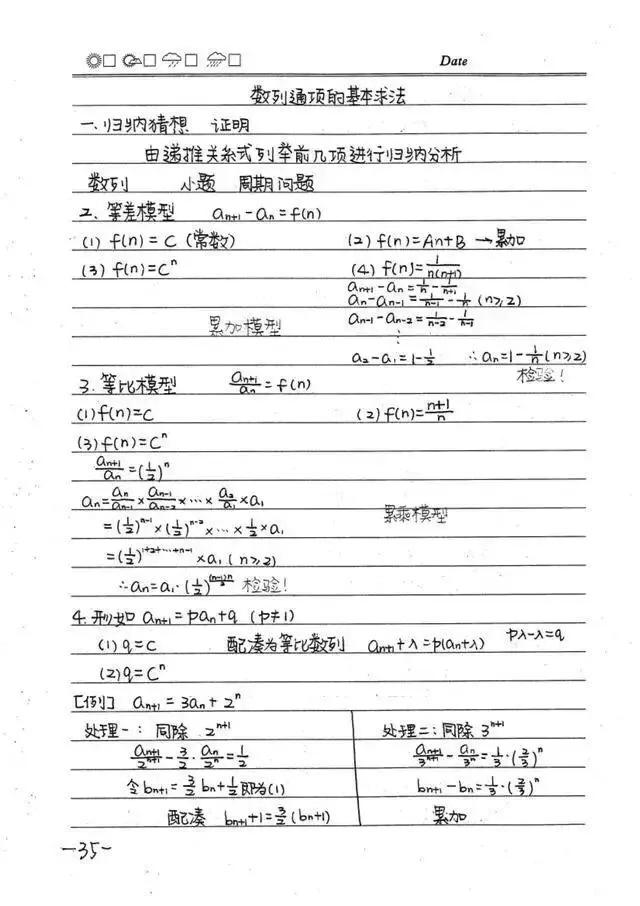 Date
数列通项的基本求法
一、归纳猜想 证明
由递推关系式列举前几项进行归纳分析
数列 小题 周期问题
2、等差模型 aₙ₊₁-aₙ=f(n)
(1) f(n)=C (常数) (2) f(n)=An+B → 累加
(3) f(n)=Cⁿ (4) f(n)=1/n(n+1)
aₙ₊₁-aₙ=1/n-1/(n+1)
aₙ-aₙ₋₁=1/(n-1)-1/n (n≥2)
累加模型 aₙ₋₁-aₙ₋₂=1/(n-2)-1/(n-1)
⋮
a₂-a₁=1-1/2 ∴aₙ=1-1/n(n≥2)
检验!
3、等比模型 aₙ₊₁/aₙ=f(n)
(1)f(n)=C (2)f(n)=(n+1)/n
(3)f(n)=Cⁿ
aₙ₊₁/aₙ=(1/2)ⁿ
aₙ=aₙ/aₙ₋₁×aₙ₋₁/aₙ₋₂×⋯×a₂/a₁×a₁ 累乘模型
=(1/2)ⁿ⁻¹×(1/2)ⁿ⁻²×⋯×1/2×a₁
=(1/2)^(1+2+⋯+n-1)×a₁(n≥2)
∴aₙ=a₁·(1/2)^((n-1)n/2) 检验!
4、形如 aₙ₊₁=paₙ+q (p≠1)
(1)q=C 配凑为等比数列 aₙ₊₁+λ=p(aₙ+λ) pλ-λ=q
(2)q=Cⁿ
[例] aₙ₊₁=3aₙ+2ⁿ
处理一:同除 2ⁿ⁺¹
aₙ₊₁/2ⁿ⁺¹-3/2·aₙ/2ⁿ=1/2
令bₙ₊₁=3/2bₙ+1/2即为(1)
配凑 bₙ₊₁+1=3/2(bₙ+1)
处理二:同除 3ⁿ⁺¹
aₙ₊₁/3ⁿ⁺¹-aₙ/3ⁿ=1/3·(2/3)ⁿ
bₙ₊₁-bₙ=1/3·(2/3)ⁿ
累加
-35-